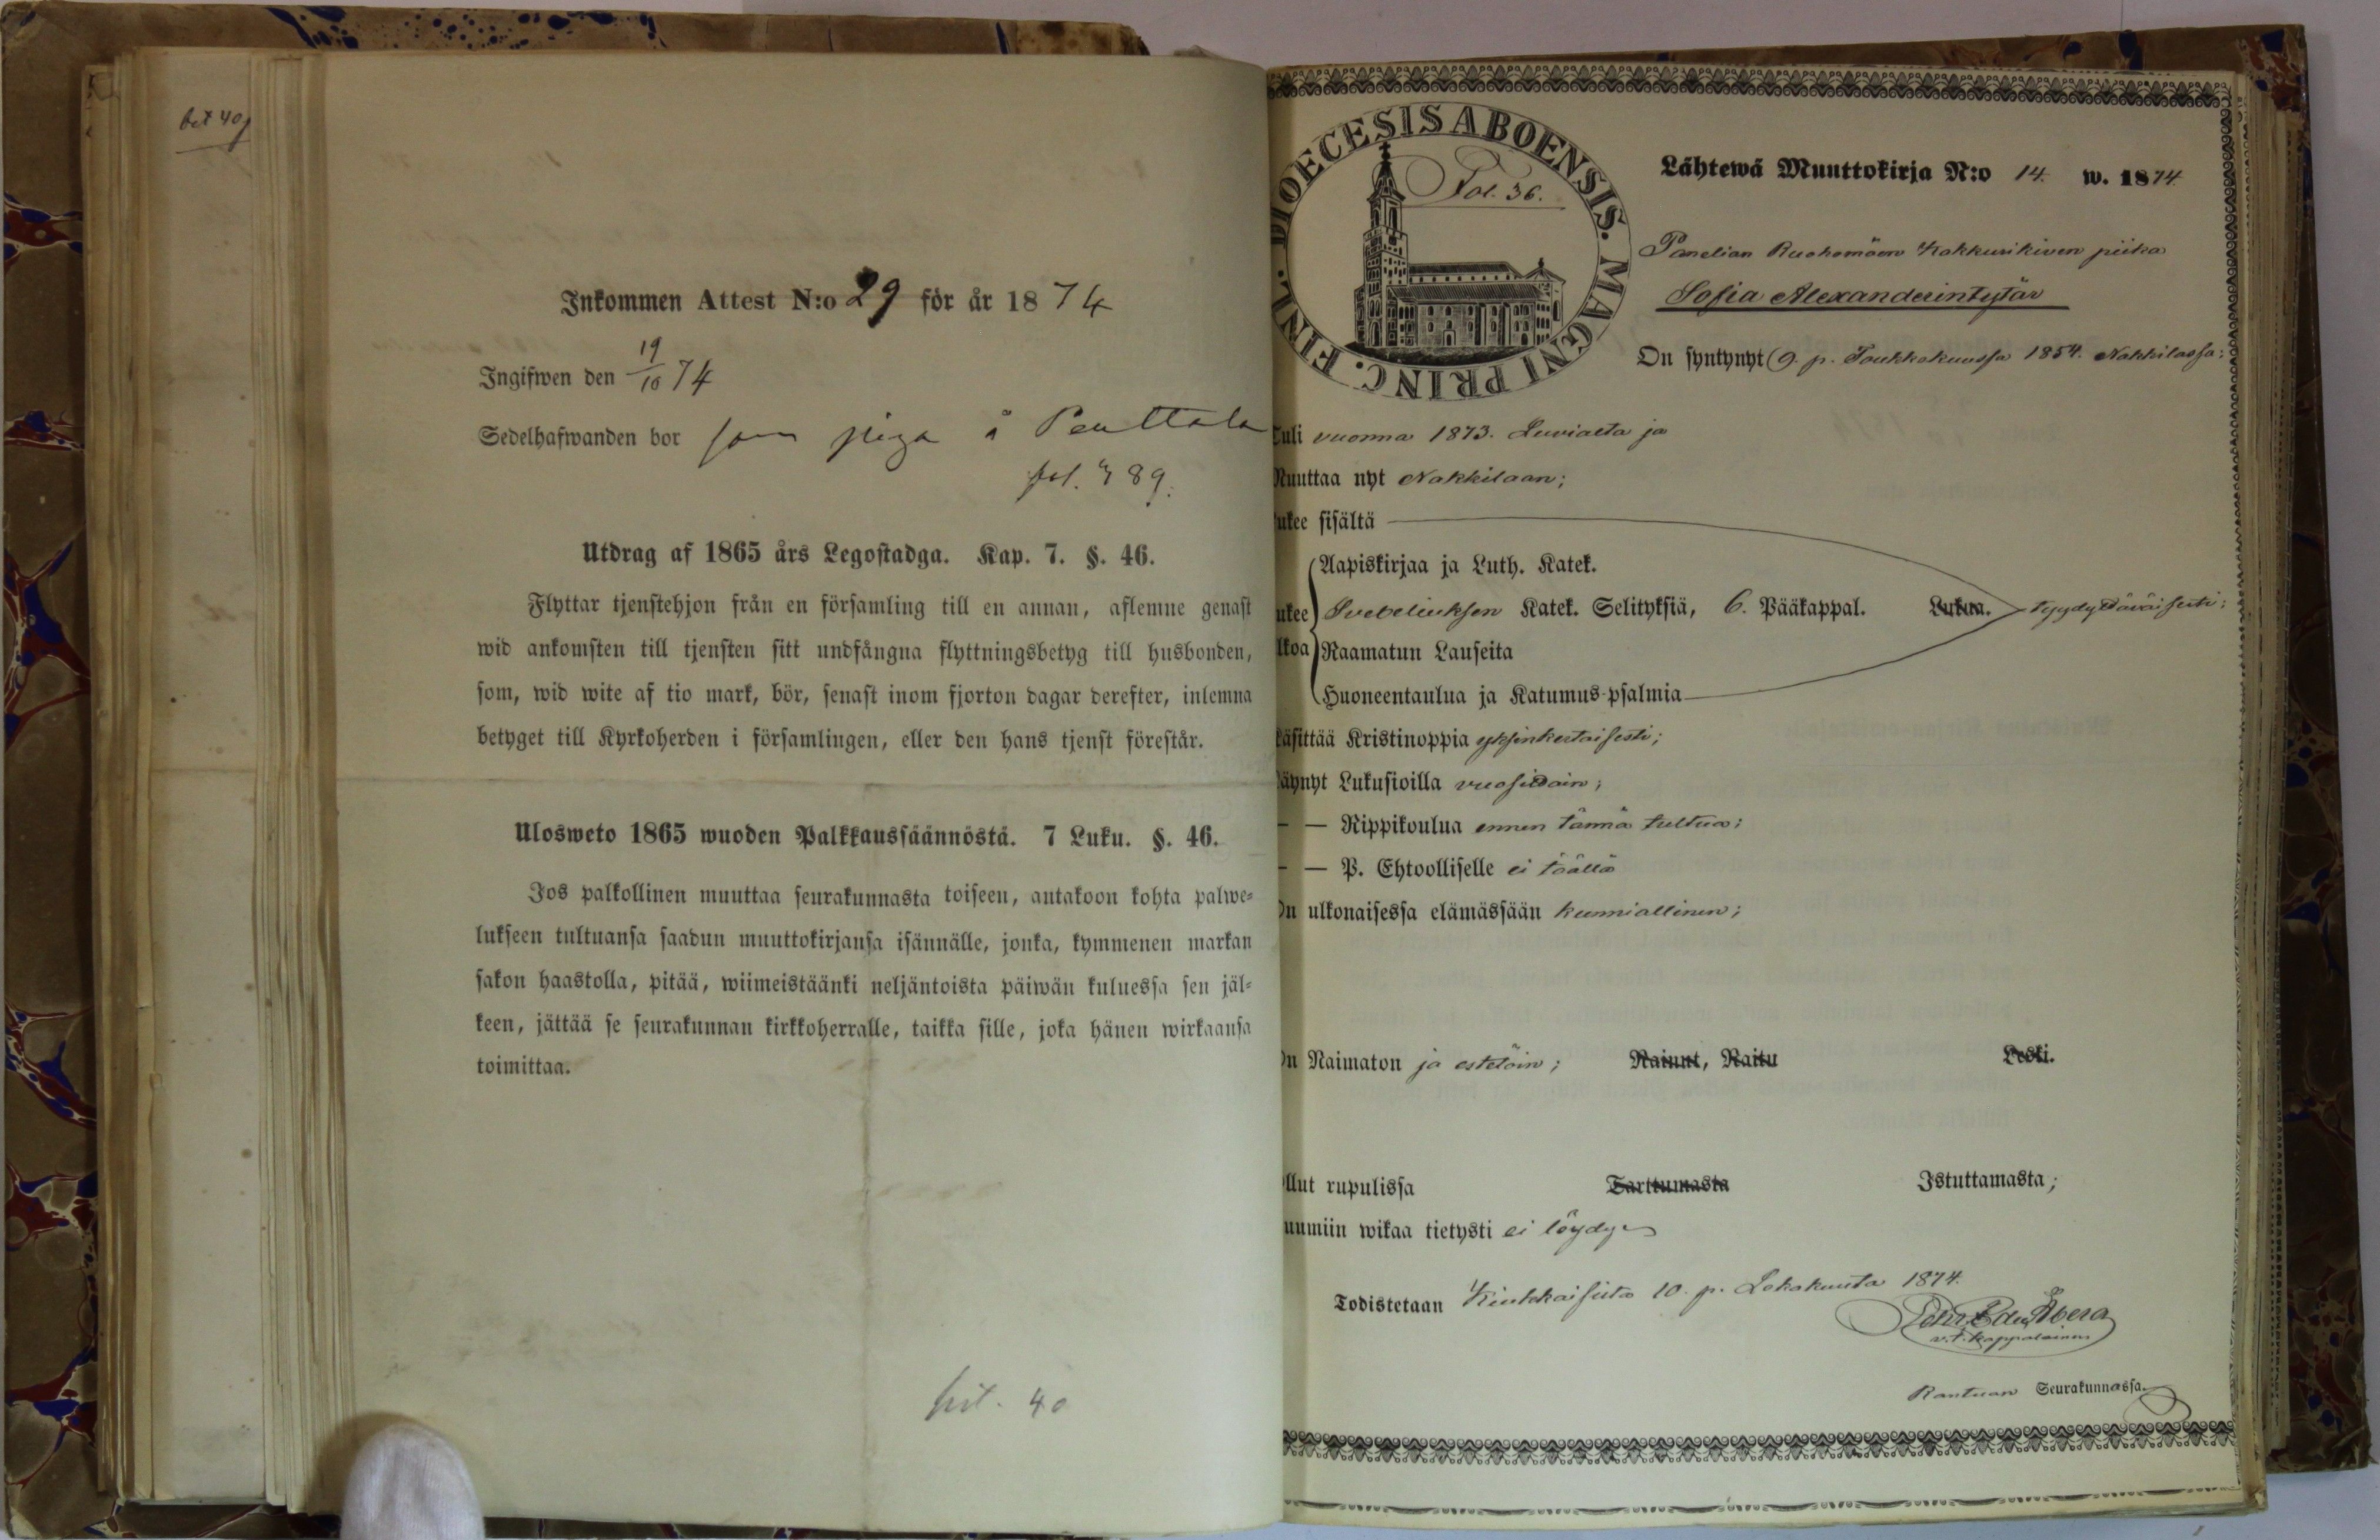 bet 40
Inkommen Attest N:o 29 för år 1874
Ingifwen den 19/10 74
Sedelhafwanden bor som piga å Penttala
fol. 489.
Utdrag af 1865 års Legostadga. Kap. 7. §. 46.
Flyttar tjenstehjon från en församling till en annan, aflemne genast
wid ankomsten till tjensten sitt undfångna flyttningsbetyg till husbonden,
som, wid wite af tio mark, bör, senast inom fjorton dagar derefter, inlemna
betyget till Kyrkoherden i församlingen, eller den hans tjenst förestår.
Ulosweto 1865 wuoden Palkkaussäännöstä. 7 Luku. §. 46.
Jos palkollinen muuttaa seurakunnasta toiseen, antakoon kohta palwe-
lukseen tultuansa saadun muuttokirjansa isännälle, jonka, kymmenen markan
sakon haastolla, pitää, wiimeistäänki neljäntoista päiwän kuluessa sen jäl-
keen, jättää se seurakunnan kirkkoherralle, taikka sille, joka hänen wirkaansa
toimittaa.
40
DIOECESIS ABOENSIS. MAGNI PRINC. FINL.
Fol. 36.
Lähtewä Muuttokirja N:o 14. w. 1874
Panelian Ruohomäen Kokkurikiven piika
Sofia Alexanderintytär
On syntynyt 9. p. Toukkokuussa 1854. Nakkilassa;
Tuli vuonna 1873. Luvialta ja
Muuttaa nyt Nakkilaan;
ukee sisältä
Aapiskirjaa ja Luth. Katek.
ukee Svebeliuksen Katek. Selityksiä, 6. Pääkappal. Lukua. tyydyttäväisesti;
lkoa Raamatun Lauseita
Huoneentaulua ja Katumus-psalmia
käsittää Kristinoppia yksinkertaisesti;
äynyt Lukusioilla vuosittain;
— — Rippikoulua ennen tänne tultua;
— — P. Ehtoolliselle ei täällä
On ulkonaisessa elämässään kunniallinen;
On Naimaton ja esteetöin; Nainut, Naitu Leski.
llut rupulissa Tarttumasta Istuttamasta;
uumiin wikaa tietysti ei löydy
Todistetaan Kiukkaisista 10. p. Lokakuuta 1874.
v.t. kappalainen
Seurakunnassa.